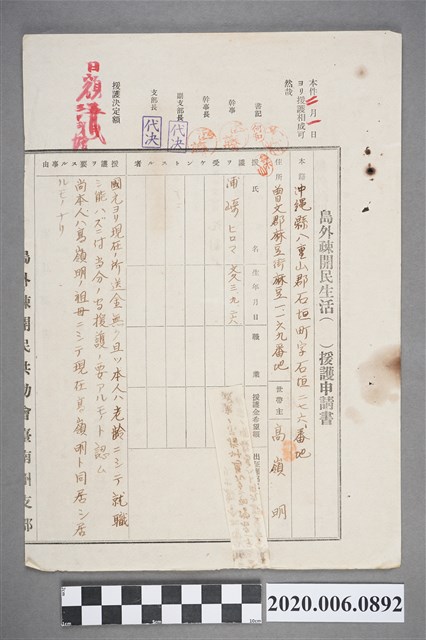 島外疎開民生活（　）援護申請書
本籍 沖縄縣八重山郡石垣町字石垣二七六番地
住所 曽文郡麻豆街麻豆一一六九番地 世帯主 高嶺 明
援護ヲ受ケントスル者
氏名 生年月日 職業 援護金希望額
浦崎 ヒロマ
援護ヲ要スル事由
國元ヨリ現在ノ所送金無ク且ツ本人ハ老齢ニシテ就職
シ能ハズニ付当分ノ間援護ノ要アルモノト認ム
尚本人ハ高嶺明ノ祖母ニシテ現在高嶺明ト同居シ居
ルモノナリ
島外疎開民共助會臺南州支部
本件 月 日
ヨリ援護相成可
然哉
書記
幹事
幹事長
副支部長 代決
支部長 代決
援護決定額
日額
2020.006.0892